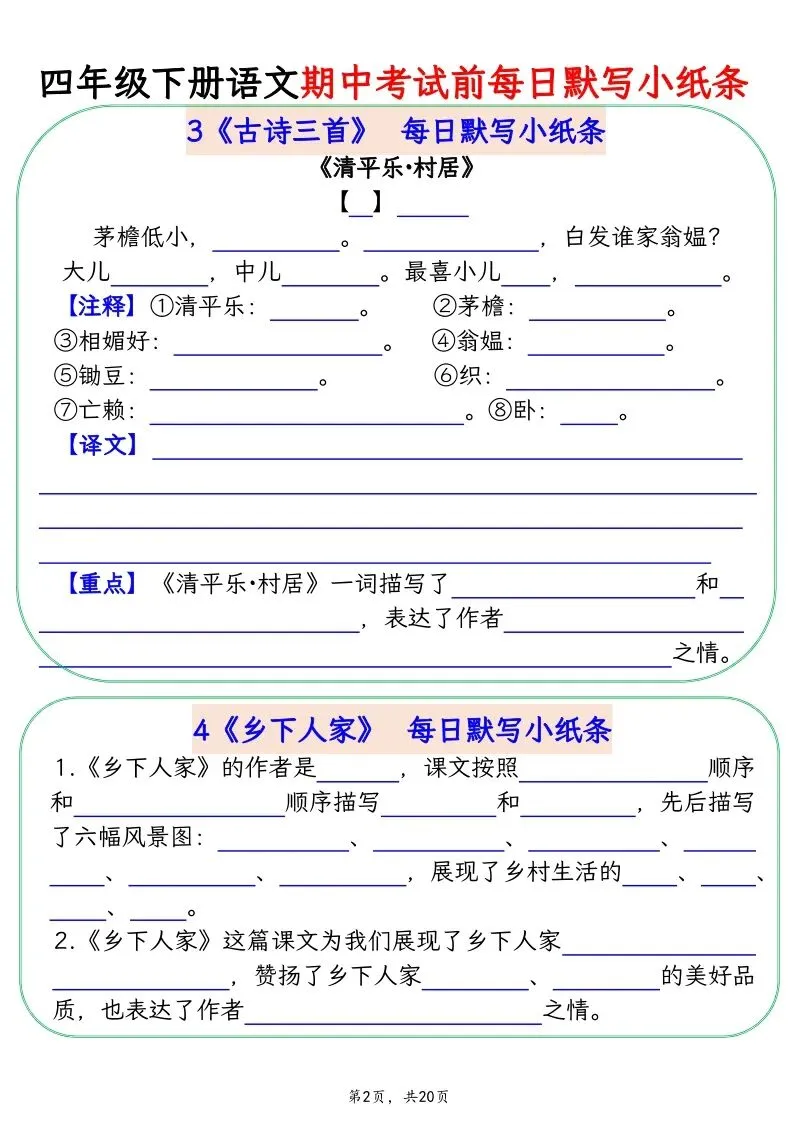 四年级下册语文期中考试前每日默写小纸条
3《古诗三首》 每日默写小纸条
《清平乐•村居》
【__】______
茅檐低小，__________。______________，白发谁家翁媪？
大儿________，中儿________。最喜小儿____，____________。
【注释】①清平乐：_______。 ②茅檐：___________。
③相媚好：_________________。 ④翁媪：___________。
⑤锄豆：______________。 ⑥织：_________________。
⑦亡赖：__________________________。⑧卧：_____。
【译文】________________________________________________
___________________________________________________________
__________________________________________________________
_______________________________________________________
【重点】《清平乐•村居》一词描写了____________________和__
__________________________，表达了作者____________________
____________________________________________________之情。
4《乡下人家》 每日默写小纸条
1.《乡下人家》的作者是_______，课文按照________________顺序
和__________________顺序描写__________和__________，先后描写
了六幅风景图：___________、___________、___________、______
_____、___________、___________，展现了乡村生活的_____、_____、
_____、_____。
2.《乡下人家》这篇课文为我们展现了乡下人家________________
_______________，赞扬了乡下人家_________、_________的美好品
质，也表达了作者_________________________之情。
第2页，共20页